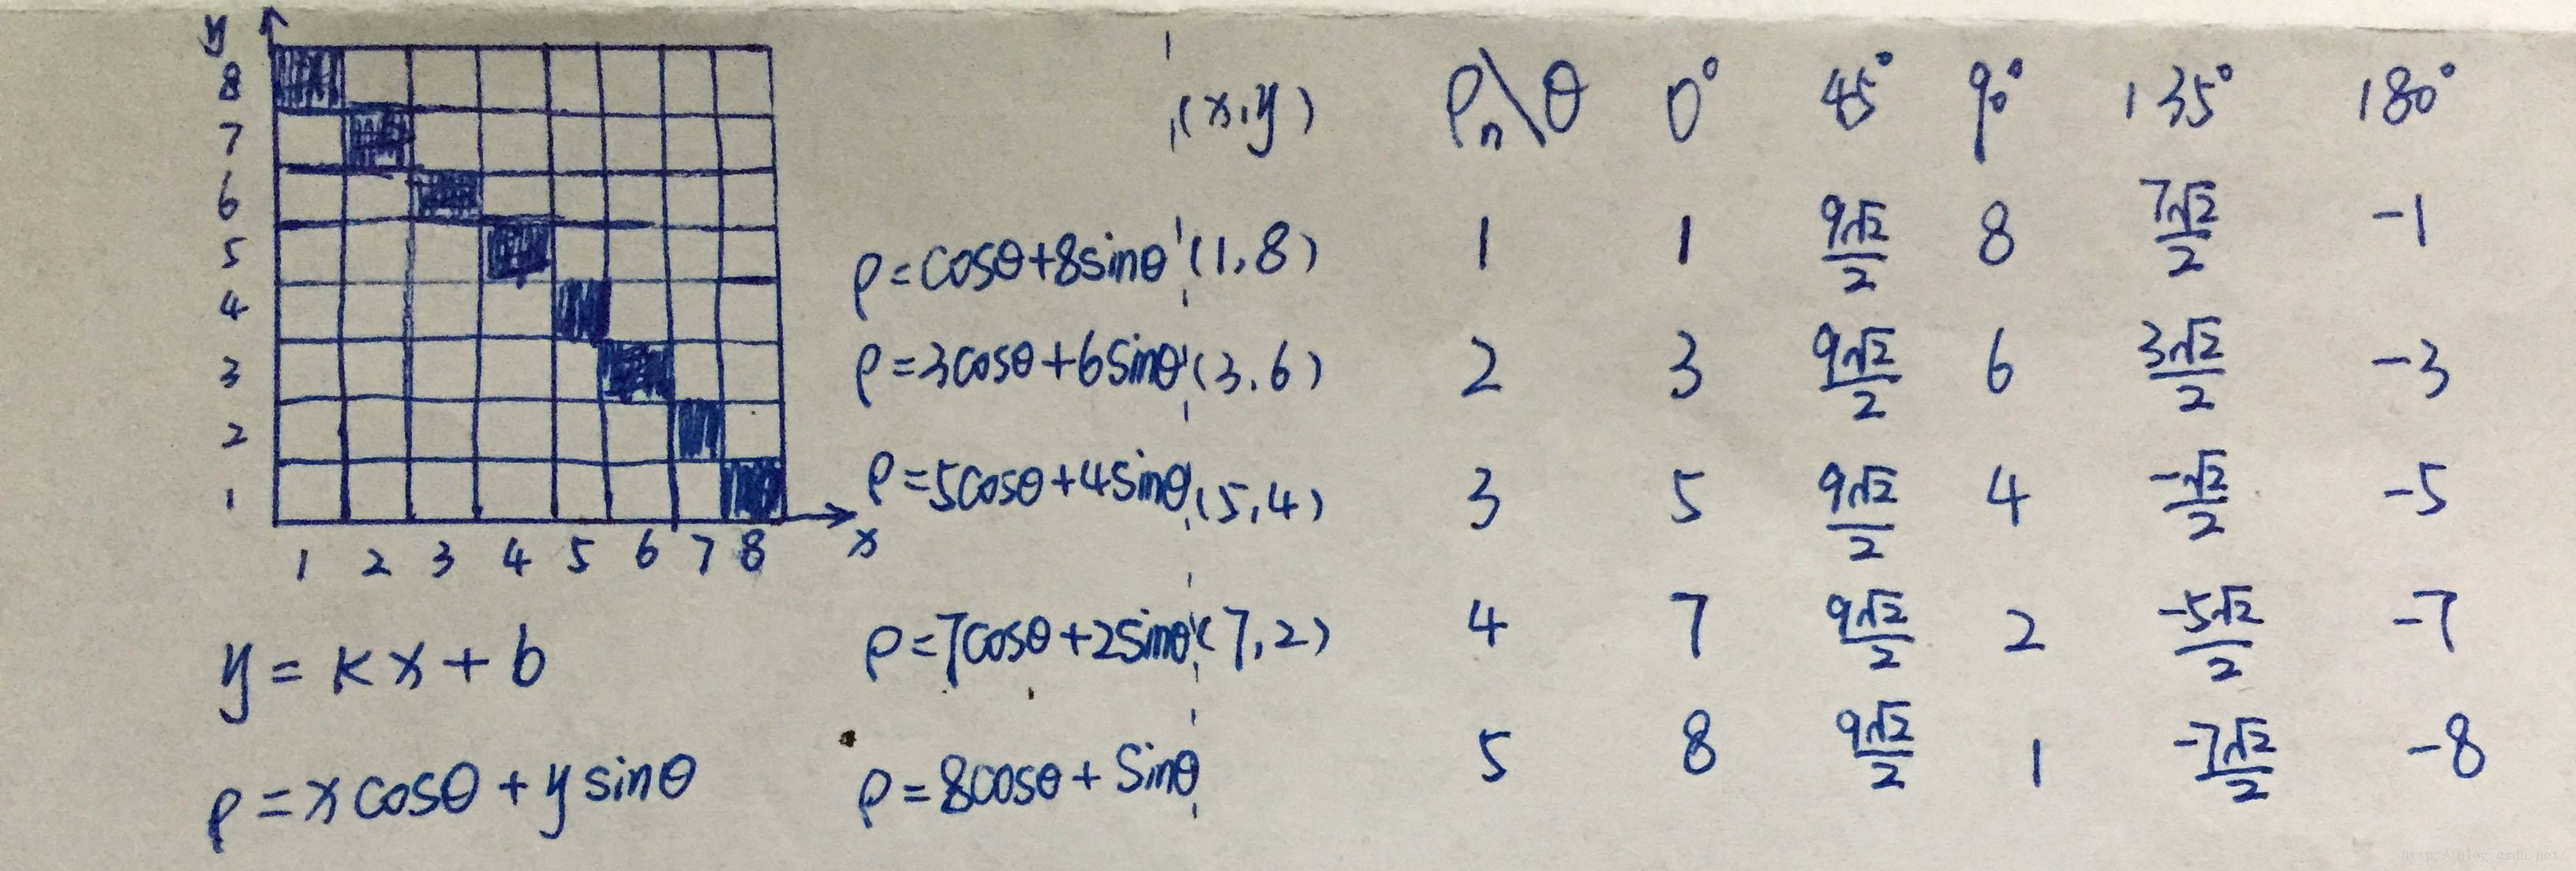 y
8
7
6
5
4
3
2
1
1 2 3 4 5 6 7 8 x
y = kx + b
ρ = x cosθ + y sinθ
(x,y) ρn\θ 0° 45° 90° 135° 180°
ρ = cosθ + 8sinθ (1,8) 1 1 9√2/2 8 7√2/2 -1
ρ = 3cosθ + 6sinθ (3,6) 2 3 9√2/2 6 3√2/2 -3
ρ = 5cosθ + 4sinθ (5,4) 3 5 9√2/2 4 -√2/2 -5
ρ = 7cosθ + 2sinθ (7,2) 4 7 9√2/2 2 -5√2/2 -7
ρ = 8cosθ + sinθ 5 8 9√2/2 1 -7√2/2 -8